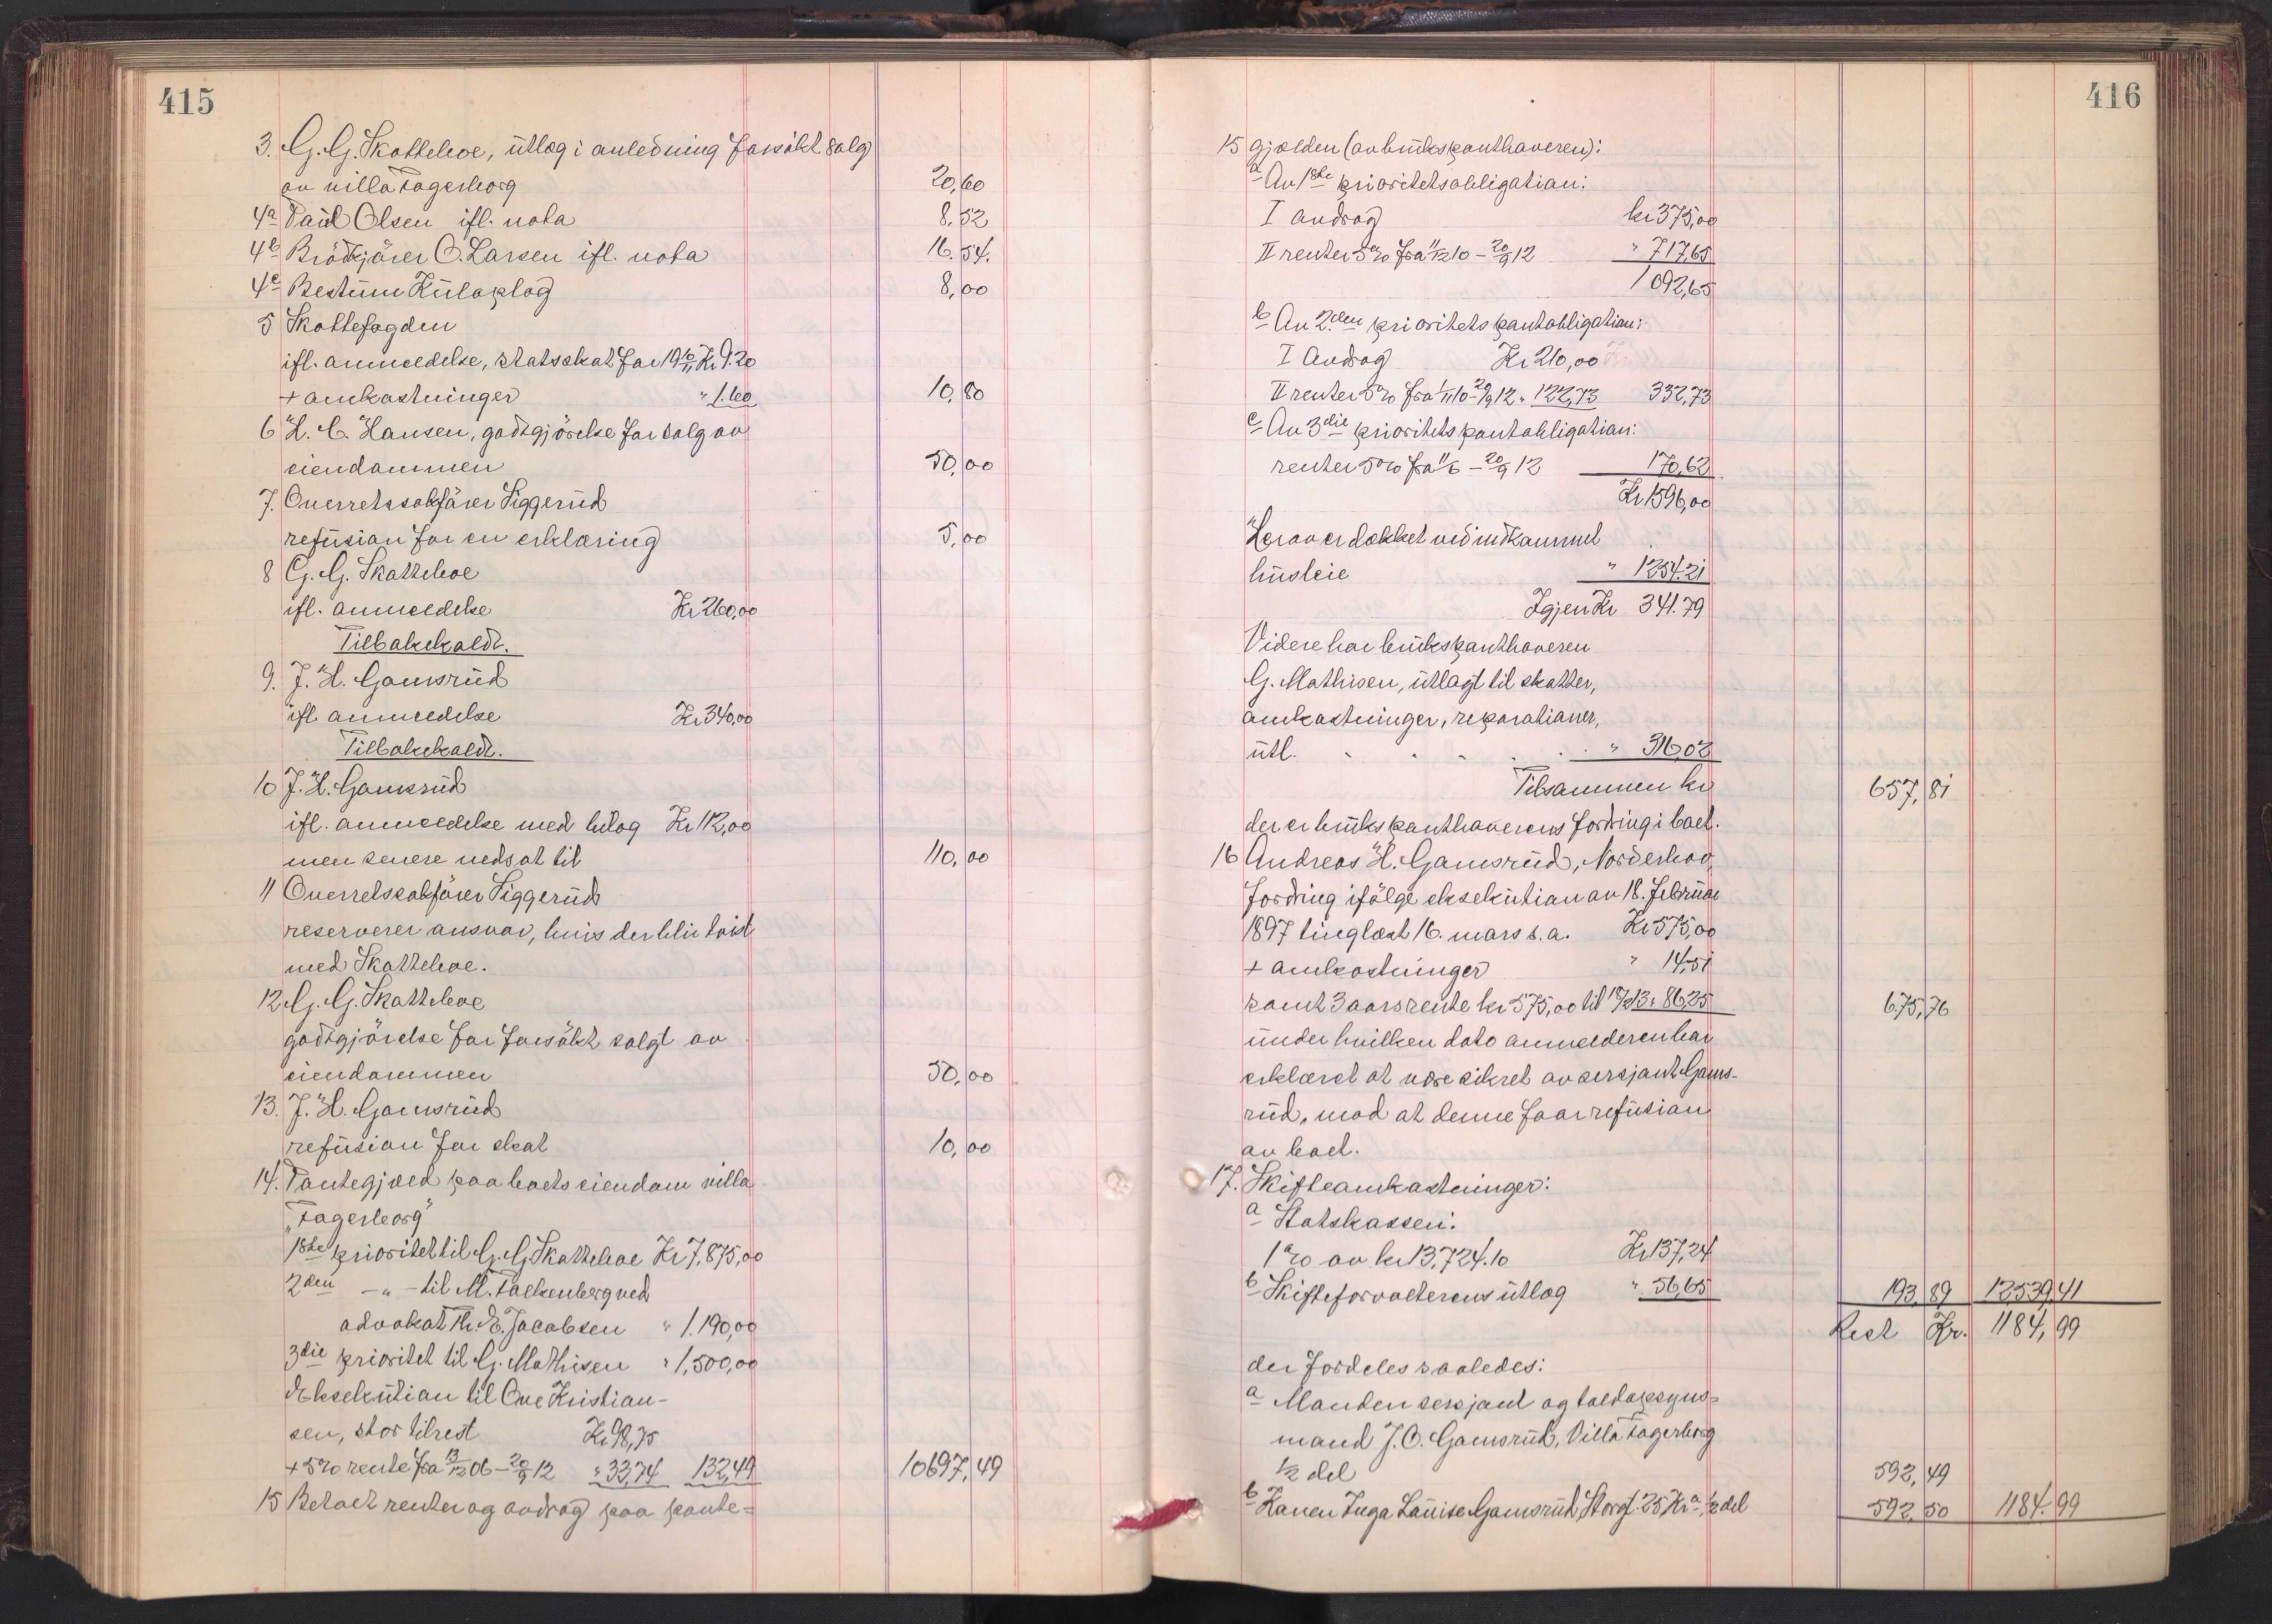 415
3. G. G. Skattebøe, ütlæg i anledning forsøkt salg
av villa Fagerborg 20,60
4a Paul Olsen ifl. nota 8,52
4b Brødkjører O. Larsen ifl. nota 16.54.
4c Bestum Kuloplag 8,00
5 Skattefogden
ifl. anmeldelse, statsskat for 1910/11 Kr 9.20
+ omkostninger " 1.60 10,80
6 H. C. Hansen, godtgjørelse for salg av
eiendommen 50,00
7. Overretssakfører Siggerud
refusion for en erklæring 5,00
8 G. G. Skattebøe
ifl. anmeldelse Kr 260,00
Tilbakekaldt.
9. J. H. Gamsrud
ifl anmeldelse Kr 340,00
Tilbakekaldt.
10 J. H. Gamsrud
ifl. anmeldelse med bilag Kr 112,00
men senere nedsat til 110,00
11 Overretssakfører Siggerud
reserverer ansvar, hvis der blir tvist
med Skattebøe.
12 G. G. Skattebøe
godtgjørelse for forsøkt salgt av
eiendommen 50,00
13. J. H. Gamsrud
refusion for skat 10,00
14. Pantegjæld paa boets eiendom villa
"Fagerborg"
1ste prioritet til G. G. Skattebøe Kr 7,875,00
2den — " — til M. Falkenberg ved
advokat Th. E. Jacobsen " 1.190,00
3die prioritet til G. Mathisen " 1,500,00
Eksekution til Ove Kristian-
sen, stor tilrest Kr 98,75
+ 5% rente fra 13/12 06 – 20/9 12 " 33,74 132,49 10697,49
15 Betalt renter og avdrag paa pante=
416
15 gjælden (av brukspanthaveren):
a Av 1ste prioritetsobligation:
I avdrag kr 375,00
II renter 5% fra 11/12 10 – 20/9 12 " 717,65
1092,65
b Av 2den prioritets pantobligation:
I Avdrag Kr 210,00
II renter 5% fra 1/11 10 – 20/9 12 " 122,73 332,73
c Av 3die prioritets pantobligation:
renter 5% fra 11/6 – 20/9 12 170,62
Kr 1596,00
Herav er dækket ved indkommet
husleie " 1254.21
Igjen Kr 341.79
Videre har brukspanthaveren
G. Mathisen, utlagt til skatter,
omkostninger, reparationer,
utl. . . . . . " 316,02
Tilsammen kr 657,81
der er brukspanthaverens fordring i boet.
16 Andreas H. Gamsrud, Norderhov,
fordring ifølge eksekution av 18. februar
1897 tinglæst 16. mars s. a. Kr 575,00
+ omkostninger " 14,51
samt 3 aars rente kr 575,00 til 18/2 13 " 86,25 675,76
under hvilken dato anmelderen har
erklæret at være sikret av sersjant Gams-
rud, mod at denne faar refusion
av boet.
17. Skifteomkostninger:
a Statskassen:
1% av kr 13,724.10 Kr 137,24
b Skifteforvalterens utlæg " 56,65 193,89 12539,41
Rest Kr. 1184,99
der fordeles saaledes:
a Manden sersjant og toldopsyns=
mand J. O. Gamsrud, Villa Fagerborg
1/2 del 592,49
b Konen Inga Louise Gamsrud, Storgt 25, Kra, 1/2 del 592,50 1184.99